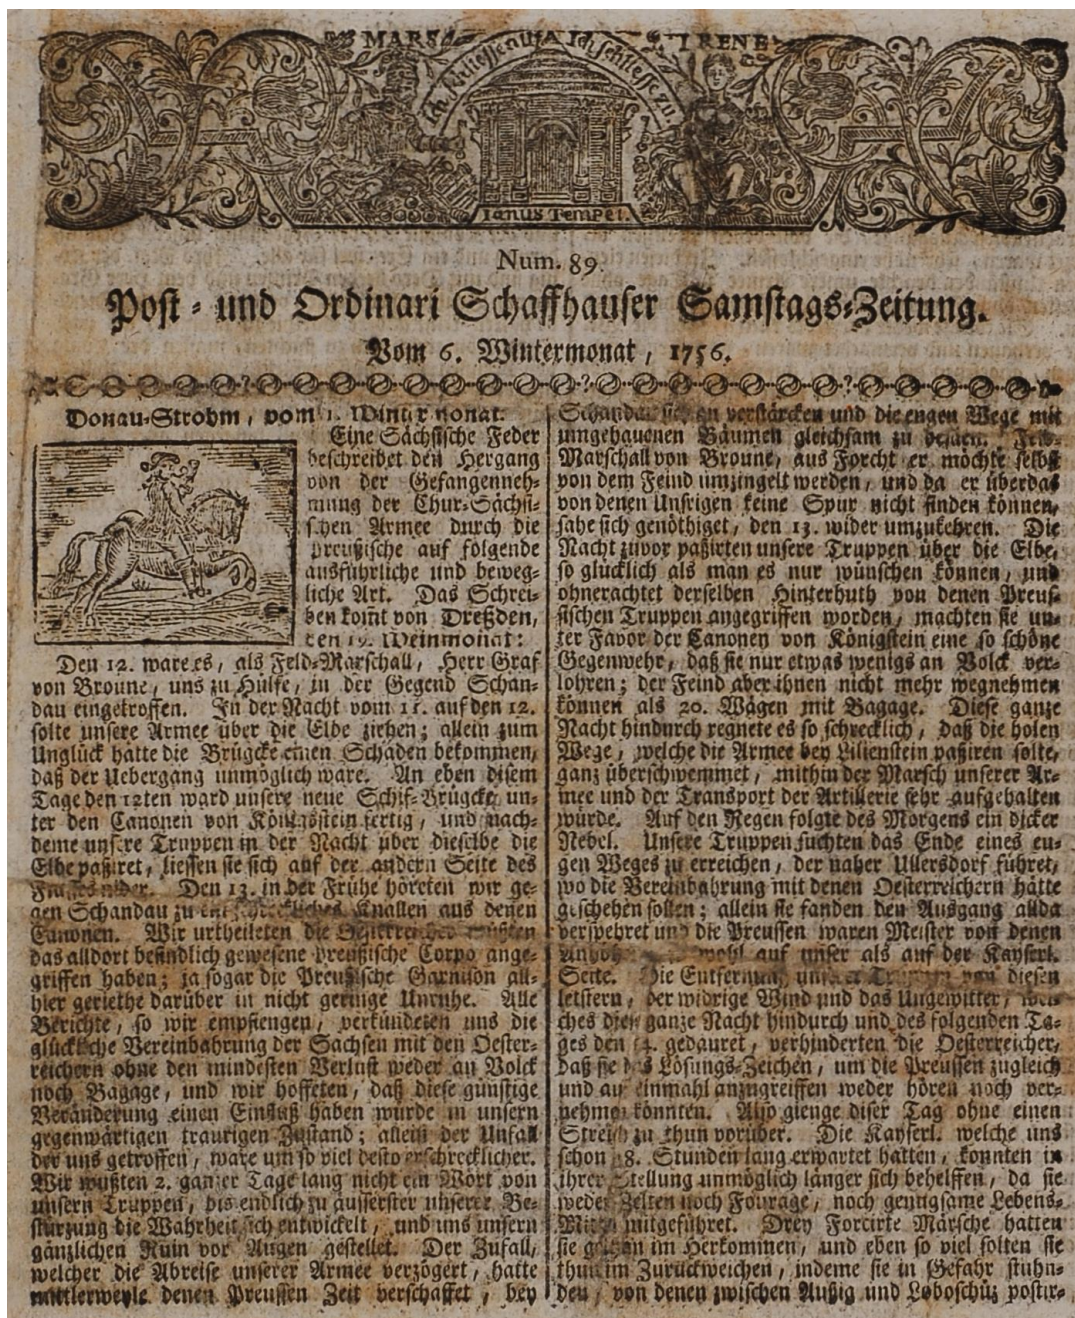 MARS
IRENE
Ich schliesse auf. Ich schliesse zu.
Ianus Tempel.
Num. 89.
Post- und Ordinari Schaffhauser Samstags-Zeitung.
Vom 6. Wintermonat, 1756.
Donau-Strohm, vom 1. Wintermonat.
Eine Sächsische Feder
beschreibet den Hergang
von der Gefangenneh-
mung der Chur-Sächsi-
schen Armee durch die
Preußische auf folgende
ausführliche und beweg-
liche Art. Das Schrei-
ben kom̃t von Dreßden,
den 19. Weinmonat:
Den 12. ware es, als Feld-Marschall, Herr Graf
von Broune, uns zu Hülfe, in der Gegend Schan-
dau eingetroffen. In der Nacht vom 11. auf den 12.
solte unsere Armee über die Elbe ziehen; allein zum
Unglück hatte die Brügcke einen Schaden bekommen,
daß der Uebergang unmöglich ware. An eben disem
Tage den 12ten ward unsere neue Schif-Brügcke un-
ter den Canonen von Königsstein fertig, und nach-
deme unsere Truppen in der Nacht über dieselbe die
Elbe paßiret, liessen sie sich auf der andern Seite des
Flusses nider. Den 13. in der Frühe höreten wir ge-
gen Schandau zu ein schreckliches Knallen aus denen
Canonen. Wir urtheileten die Oesterreicher müßten
das alldort befindlich gewesene Preußische Corpo ange-
griffen haben; ja sogar die Preußische Garnison all-
hier geriethe darüber in nicht geringe Unruhe. Alle
Berichte, so wir empfiengen, verkündeten uns die
glückliche Vereinbahrung der Sachsen mit den Oester-
reichern ohne den mindesten Verlust weder an Volck
noch Bagage, und wir hoffeten, daß diese günstige
Veränderung einen Einfluß haben würde in unsern
gegenwärtigen traurigen Zustand; allein der Unfall
der uns getroffen, ware um so viel desto erschrecklicher.
Wir wußten 2. ganzer Tage lang nicht ein Wort von
unsern Truppen, bis endlich zu äusserster unserer Be-
stürzung die Wahrheit sich entwickelt, und uns unsern
gänzlichen Ruin vor Augen gestellet. Der Zufall,
welcher die Abreise unserer Armee verzögert, hatte
mittlerweyle denen Preussen Zeit verschaffet, bey
Schandau sich zu verstärcken und die engen Wege mit
umgehauenen Bäumen gleichsam zu besäen. Feld-
Marschall von Broune, aus Forcht er möchte selbst
von dem Feind umzingelt werden, und da er überdas
von denen Unsrigen keine Spur nicht finden können,
sahe sich genöthiget, den 13. wider umzukehren. Die
Nacht zuvor paßirten unsere Truppen über die Elbe,
so glücklich als man es nur wünschen können, und
ohnerachtet derselben Hinterhuth von denen Preus-
sischen Truppen angegriffen worden, machten sie un-
ter Favor der Canonen von Königstein eine so schöne
Gegenwehr, daß sie nur etwas wenigs an Volck ver-
lohren; der Feind aber ihnen nicht mehr wegnehmen
können als 20. Wägen mit Bagage. Diese ganze
Nacht hindurch regnete es so schrecklich, daß die holen
Wege, welche die Armee bey Lilienstein paßiren solte,
ganz überschwemmet, mithin der Marsch unserer Ar-
mee und der Transport der Artillerie sehr aufgehalten
würde. Auf den Regen folgte des Morgens ein dicker
Nebel. Unsere Truppen suchten das Ende eines eu-
gen Weges zu erreichen, der naher Ullersdorf führet,
wo die Vereinbahrung mit denen Oesterreichern hätte
geschehen sollen; allein sie fanden den Ausgang allda
verspehret und die Preussen waren Meister von denen
wohl auf unser als auf der Kayserl.
Seite. Die Entfernung unserer Truppen von diesen
letstern, der widrige Wind und das Ungewitter, wel-
ches diese ganze Nacht hindurch und des folgenden Ta-
ges den 14. gedauret, verhinderten die Oesterreicher,
daß sie das Lösungs-Zeichen, um die Preussen zugleich
und auf einmahl anzugreiffen weder hören noch ver-
nehmen könnten. Also gienge diser Tag ohne einen
Streich zu thun vorüber. Die Kayserl. welche uns
schon 48. Stunden lang erwartet hatten, konnten in
ihrer Stellung unmöglich länger sich behelffen, da sie
weder Zelten noch Fourage, noch genugsame Lebens-
Mittel mitgeführet. Drey Forcirte Märsche hatten
sie gethan im Herkommen, und eben so viel solten sie
thun im Zurückweichen, indeme sie in Gefahr stuhn-
den, von denen zwischen Außig und Loboschüz postir-